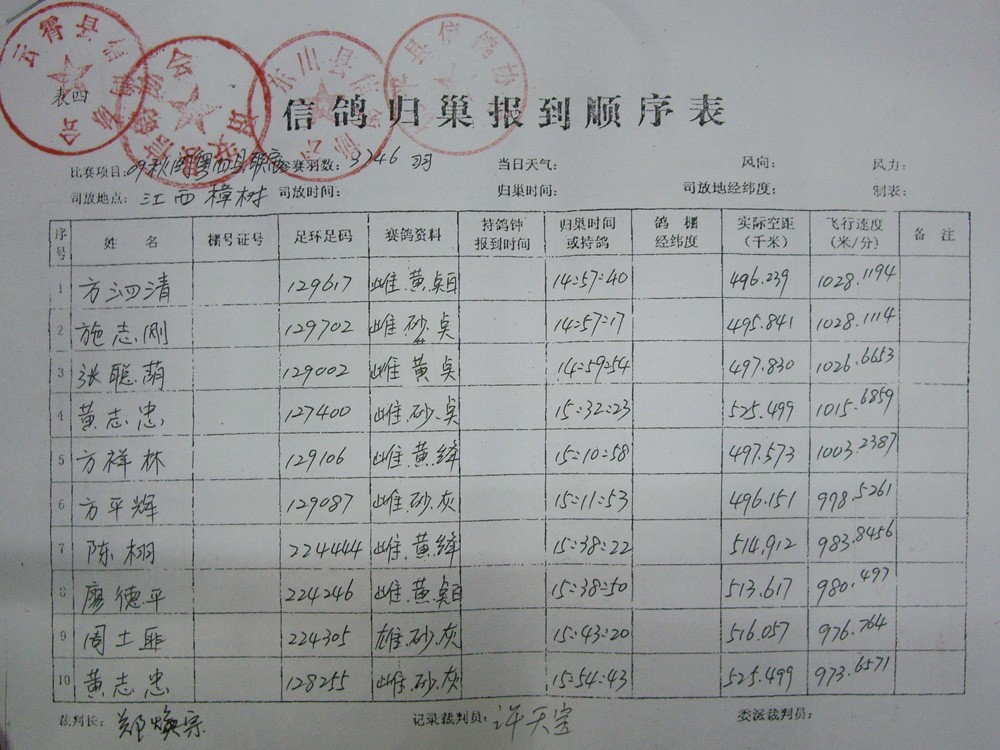 表四
信鸽归巢报到顺序表
比赛项目: 09秋闽粤四县联 参赛羽数: 3746 羽 当日天气: 风向: 风力:
司放地点: 江西樟树 司放时间: 归巢时间: 司放地经纬度: 制表:
序号 姓 名 棚号证号 足环足码 赛鸽资料 持鸽钟报到时间 归巢时间或持鸽 鸽棚经纬度 实际空距(千米) 飞行速度(米/分) 备 注
1 方泗清 129617 雌.黄. 14:57:40 496.239 1028.1194
2 施志刚 129702 雌.砂. 14:57:17 495.841 1028.1114
3 张聪荫 129002 雌 黄 14:59:54 497.830 1026.6653
4 黄志忠 127400 雌.砂. 15:32:23 525.499 1015.6859
5 方祥林 129106 雌.黄.绛 15:10:58 497.573 1003.2387
6 方平辉 129087 雌.砂.灰 15:11:53 496.151 998.5261
7 陈栩 224444 雌.黄.绛 15:38:22 514.912 983.8456
8 廖德平 224246 雌.黄. 15:38:50 513.617 980.497
9 周土 224305 雄.砂.灰 15:43:20 516.057 976.764
10 黄志忠 128255 雌.砂.灰 15:54:43 525.499 973.6571
裁判长: 郑焕宗 记录裁判员: 许天宝 委派裁判员: